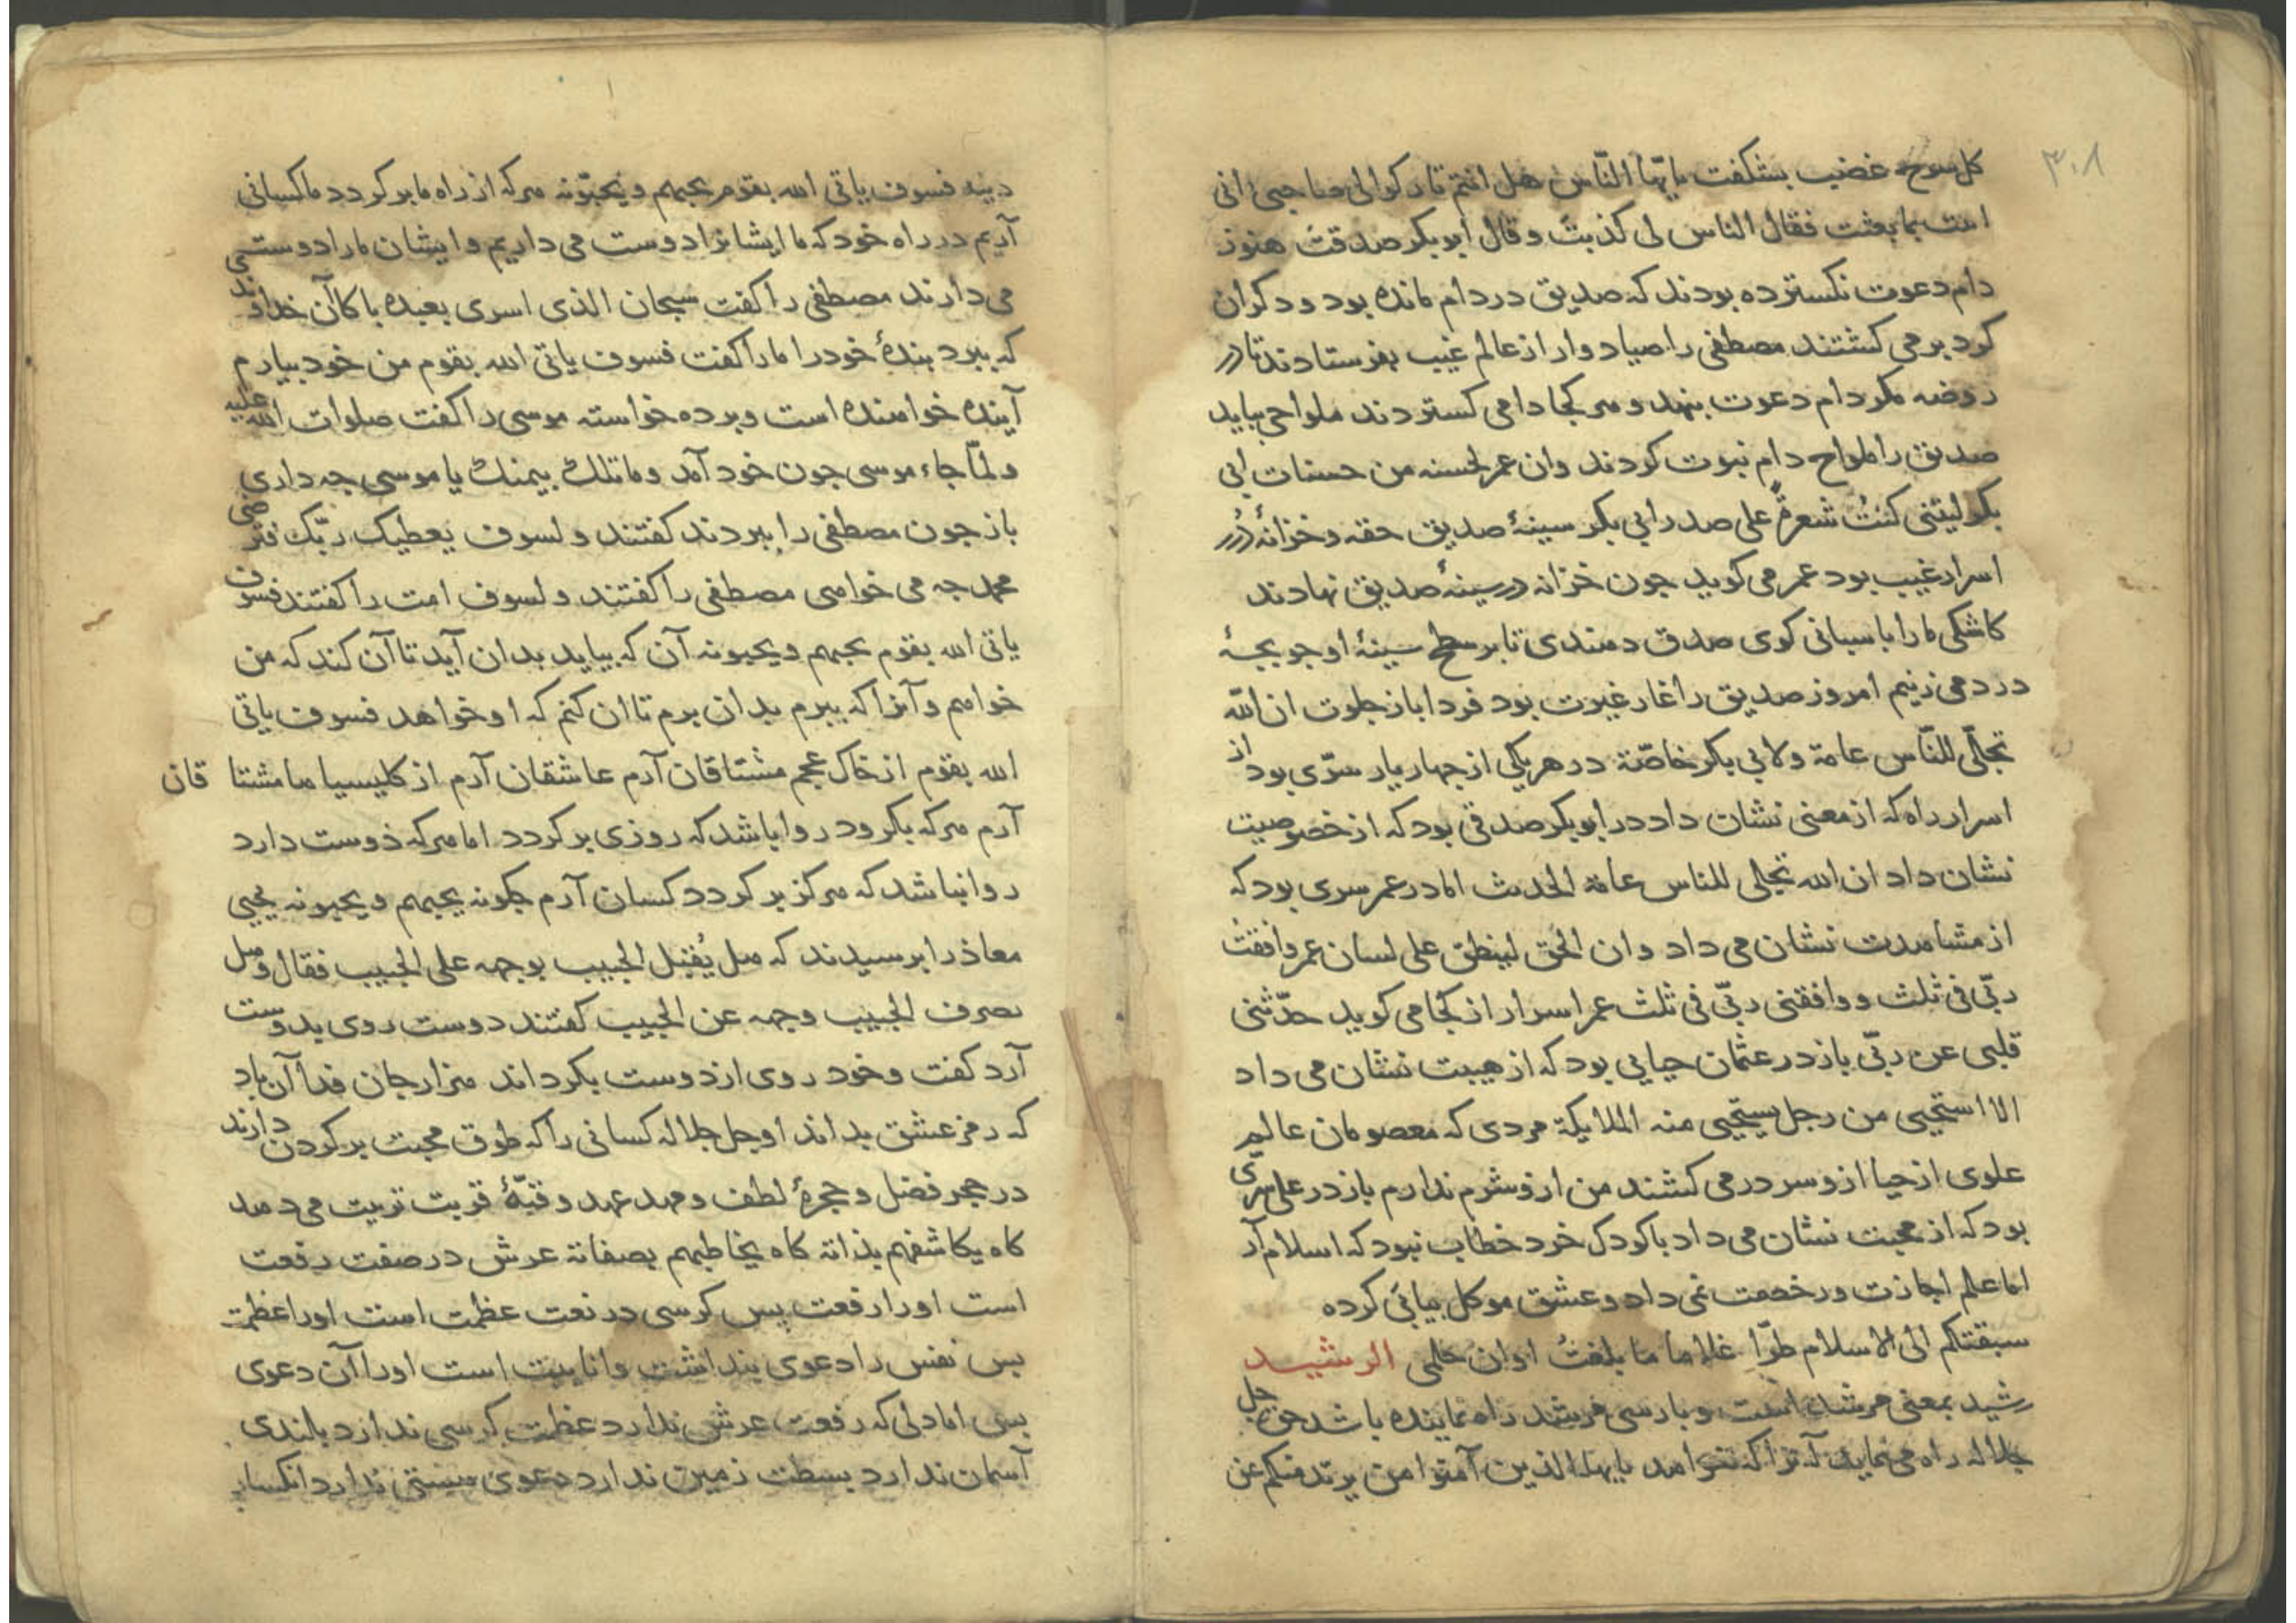 ۳۰۸
کل سوخ غضب بشکفت یایّها النّاس هل انتم تارکوا لی صاحبی انی
اتیت بما بعثت فقال الناس لی کذبتَ و قال ابوبکر صدقتَ هنوز
دام دعوت نکسترده بودند که صدیق در دام مانده بود و دکران
کرد بر می کشتند مصطفی را صیاد وار از عالم غیب بفرستادند تا در
روضه مکر دام دعوت بنهد و هر کجا دامی کستردند ملواحی بباید
صدیق را ملواح دام نبوت کردند وان عمر لحسنه من حسنات ابی
بکر لیتنی کنتُ شعرةً علی صدر ابی بکر سینهٔ صدیق حقه و خزانهٔ دُرر
اسرار غیب بود عمر می کوید جون خزانه در سینهٔ صدیق نهادند
کاشکی ما را باسبانی کوی صدق دهندی تا بر سطح سینهٔ او جو بجهٔ
در دمی زنیم امروز صدیق را غار غیرت بود فردا باز جلوت ان الله
تجلّی للنّاس عامة ولابی بکر خاصّة در هر یکی از جهار یار سرّی بود از
اسرار راه که از معنی نشان داد در ابوبکر صدقی بود که از خصوصیت
نشان داد ان الله تجلی للناس عامة الحدیث اما در عمر سری بود که
از مشاهدت نشان می داد وان الحق لینطق علی لسان عمر وافقتُ
ربّی فی ثلث و وافقنی ربّی فی ثلث عمر اسرار از کجا می کوید حدّثنی
قلبی عن ربّی باز در عثمان حیایی بود که از هیبت نشان می داد
الا استحیی من رجل یستحیی منه الملایکة مردی که معصومان عالم
علوی از حیا ازو سر در می کشند من ازو شرم ندارم باز در علی سرّی
بود که از محبت نشان می داد با کودک خرد خطاب نبود که اسلام آر
اما علم اجازت و رخصت نمی داد و عشق موکل بیانی کرده
سبقتکم الی الاسلام طرّا غلاما ما بلغتُ اوان حلمی الرشید
رشید بمعنی مرشد است و بارسی مرشد راه نماینده باشد حق جل
جلاله راه می نماید آنرا که خواهد یایها الذین آمنوا من یرتد منکم عن
دینه فسوف یاتی الله بقوم یحبهم و یحبّونه هرکه از راه ما بر کردد ما کسانی
آریم در راه خود که ما ایشانرا دوست می داریم و ایشان ما را دوست می
می دارند مصطفی را کفت سبحان الذی اسری بعبده باکا آن خداوند
که ببرد بندهٔ خود را ما را کفت فسوف یاتی الله بقوم من خود بیارم
آینده خواهنده است و برده خواسته موسی را کفت صلوات الله علیه
ولمّا جاء موسی جون خود آمد و ما تلک بیمینک یا موسی جه داری
باز جون مصطفی را ببردند کفتند و لسوف یعطیک ربّک فترضی
محمد جه می خواهی مصطفی را کفتند و لسوف امت را کفتند فسوف
یاتی الله بقوم یحبهم و یحبونه آن که بیاید بدان آید تا آن کند که من
خواهم و آنرا که ببرم بدان برم تا ان کنم که او خواهد فسوف یاتی
الله بقوم از خاک عجم مشتاقان آرم عاشقان آرم از کلیسیاها مشتا قان
آرم هرکه بکرود روا باشد که روزی بر کردد اما هرکه دوست دارد
روا نباشد که هرکز بر کردد کسان آرم جکونه یحبهم و یحبونه یحیی
معاذ را برسیدند که هل یُقبل الحبیب بوجهه علی الحبیب فقال وهل
یصرف الحبیب وجهه عن الحبیب کفتند دوست روی بدوست
آرد کفت و خود روی از دوست بکرداند هزار جان فدا آن باد
که رمز عشق بداند او جل جلاله کسانی را که طوق محبت بر کردن دارند
در حجر فضل و حجرهٔ لطف و مهد عهد و قبّهٔ قربت تربیت می دهد
کاه یکاشفهم بذاته کاه یخاطبهم بصفاته عرش در صفت رفعت
است او را رفعت بس کرسی در نعت عظمت است او را عظمت
بس نفس را دعوی بنداشت و انانیت است او را آن دعوی
بس اما دلی که رفعت عرش ندارد عظمت کرسی ندارد بلندی
آسمان ندارد بسطت زمین ندارد دعوی هستی ندارد انکسار